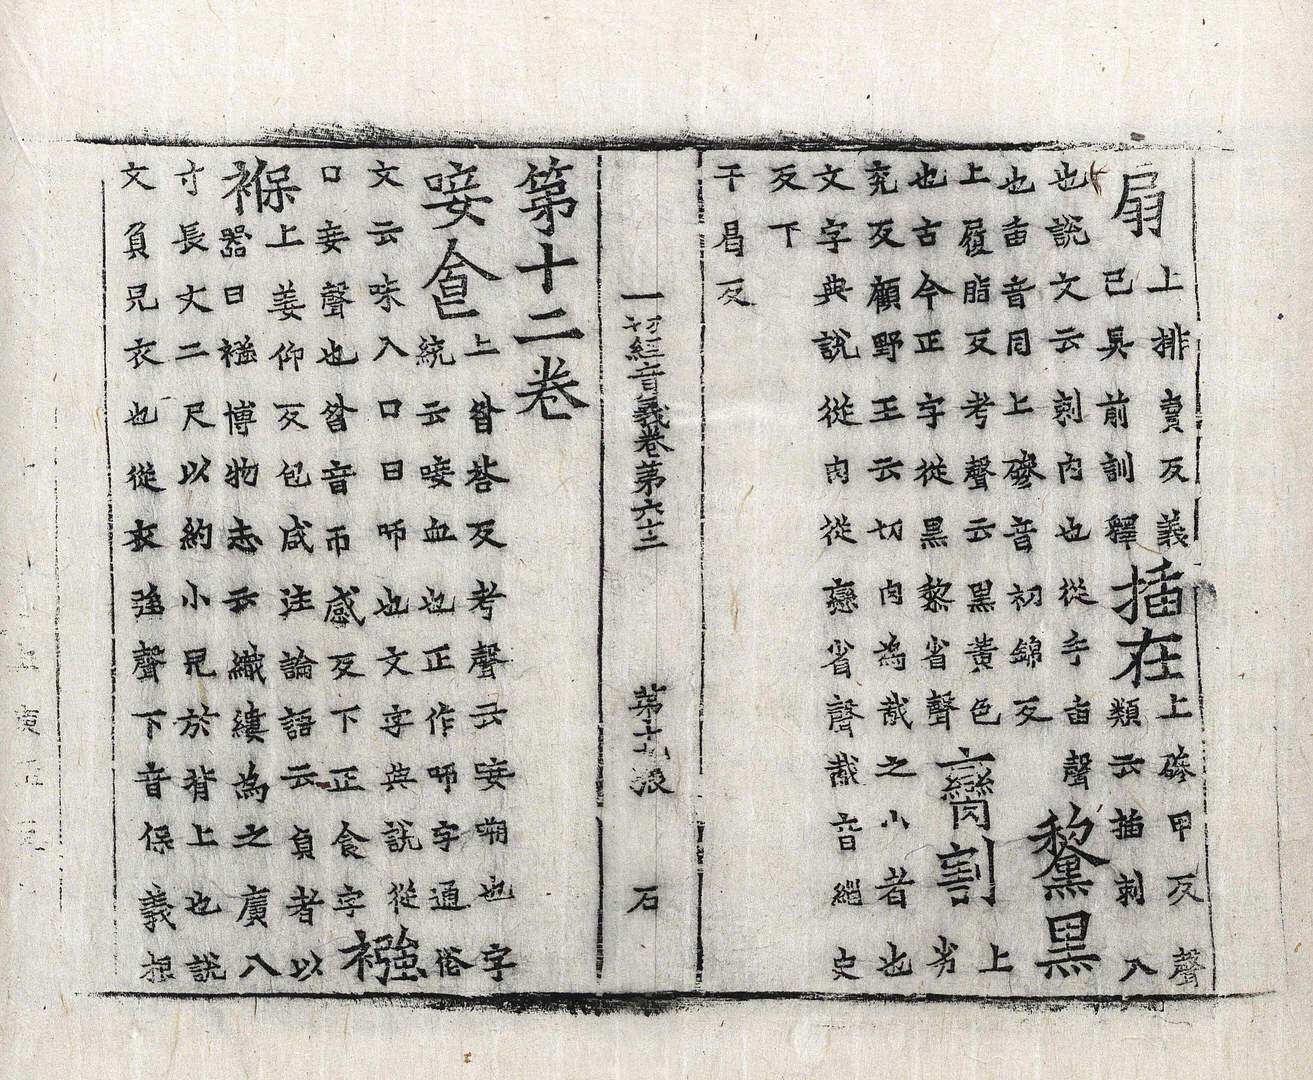 扇
上排賣反義
已具前訓釋
插在
上磣甲反聲
類云插刺入
也說文云刺內也從手臿聲
也臿音同上磣音初錦反
黧黑
上履脂反考聲云黑黃色
也古今正字從黑黎省聲
臠割
上
劣
兖反顧野王云切肉為胾之小者也
文字典說從肉從䜌省聲胾音緇史
反下
干曷反
一切經音義卷第六十二
第十九張
石
第十二卷
唼食
上咎荅反考聲云唼啑也字
統云唼血也正作啑字通俗
文云味入口曰啑也文字典說從
口妾聲也咎音帀感反下正食字
襁
褓
上姜仰反包咸注論語云負者以
器曰襁博物志云織縷為之廣八
寸長丈二尺以約小兒於背上也說
文負兒衣也從衣強聲下音保義